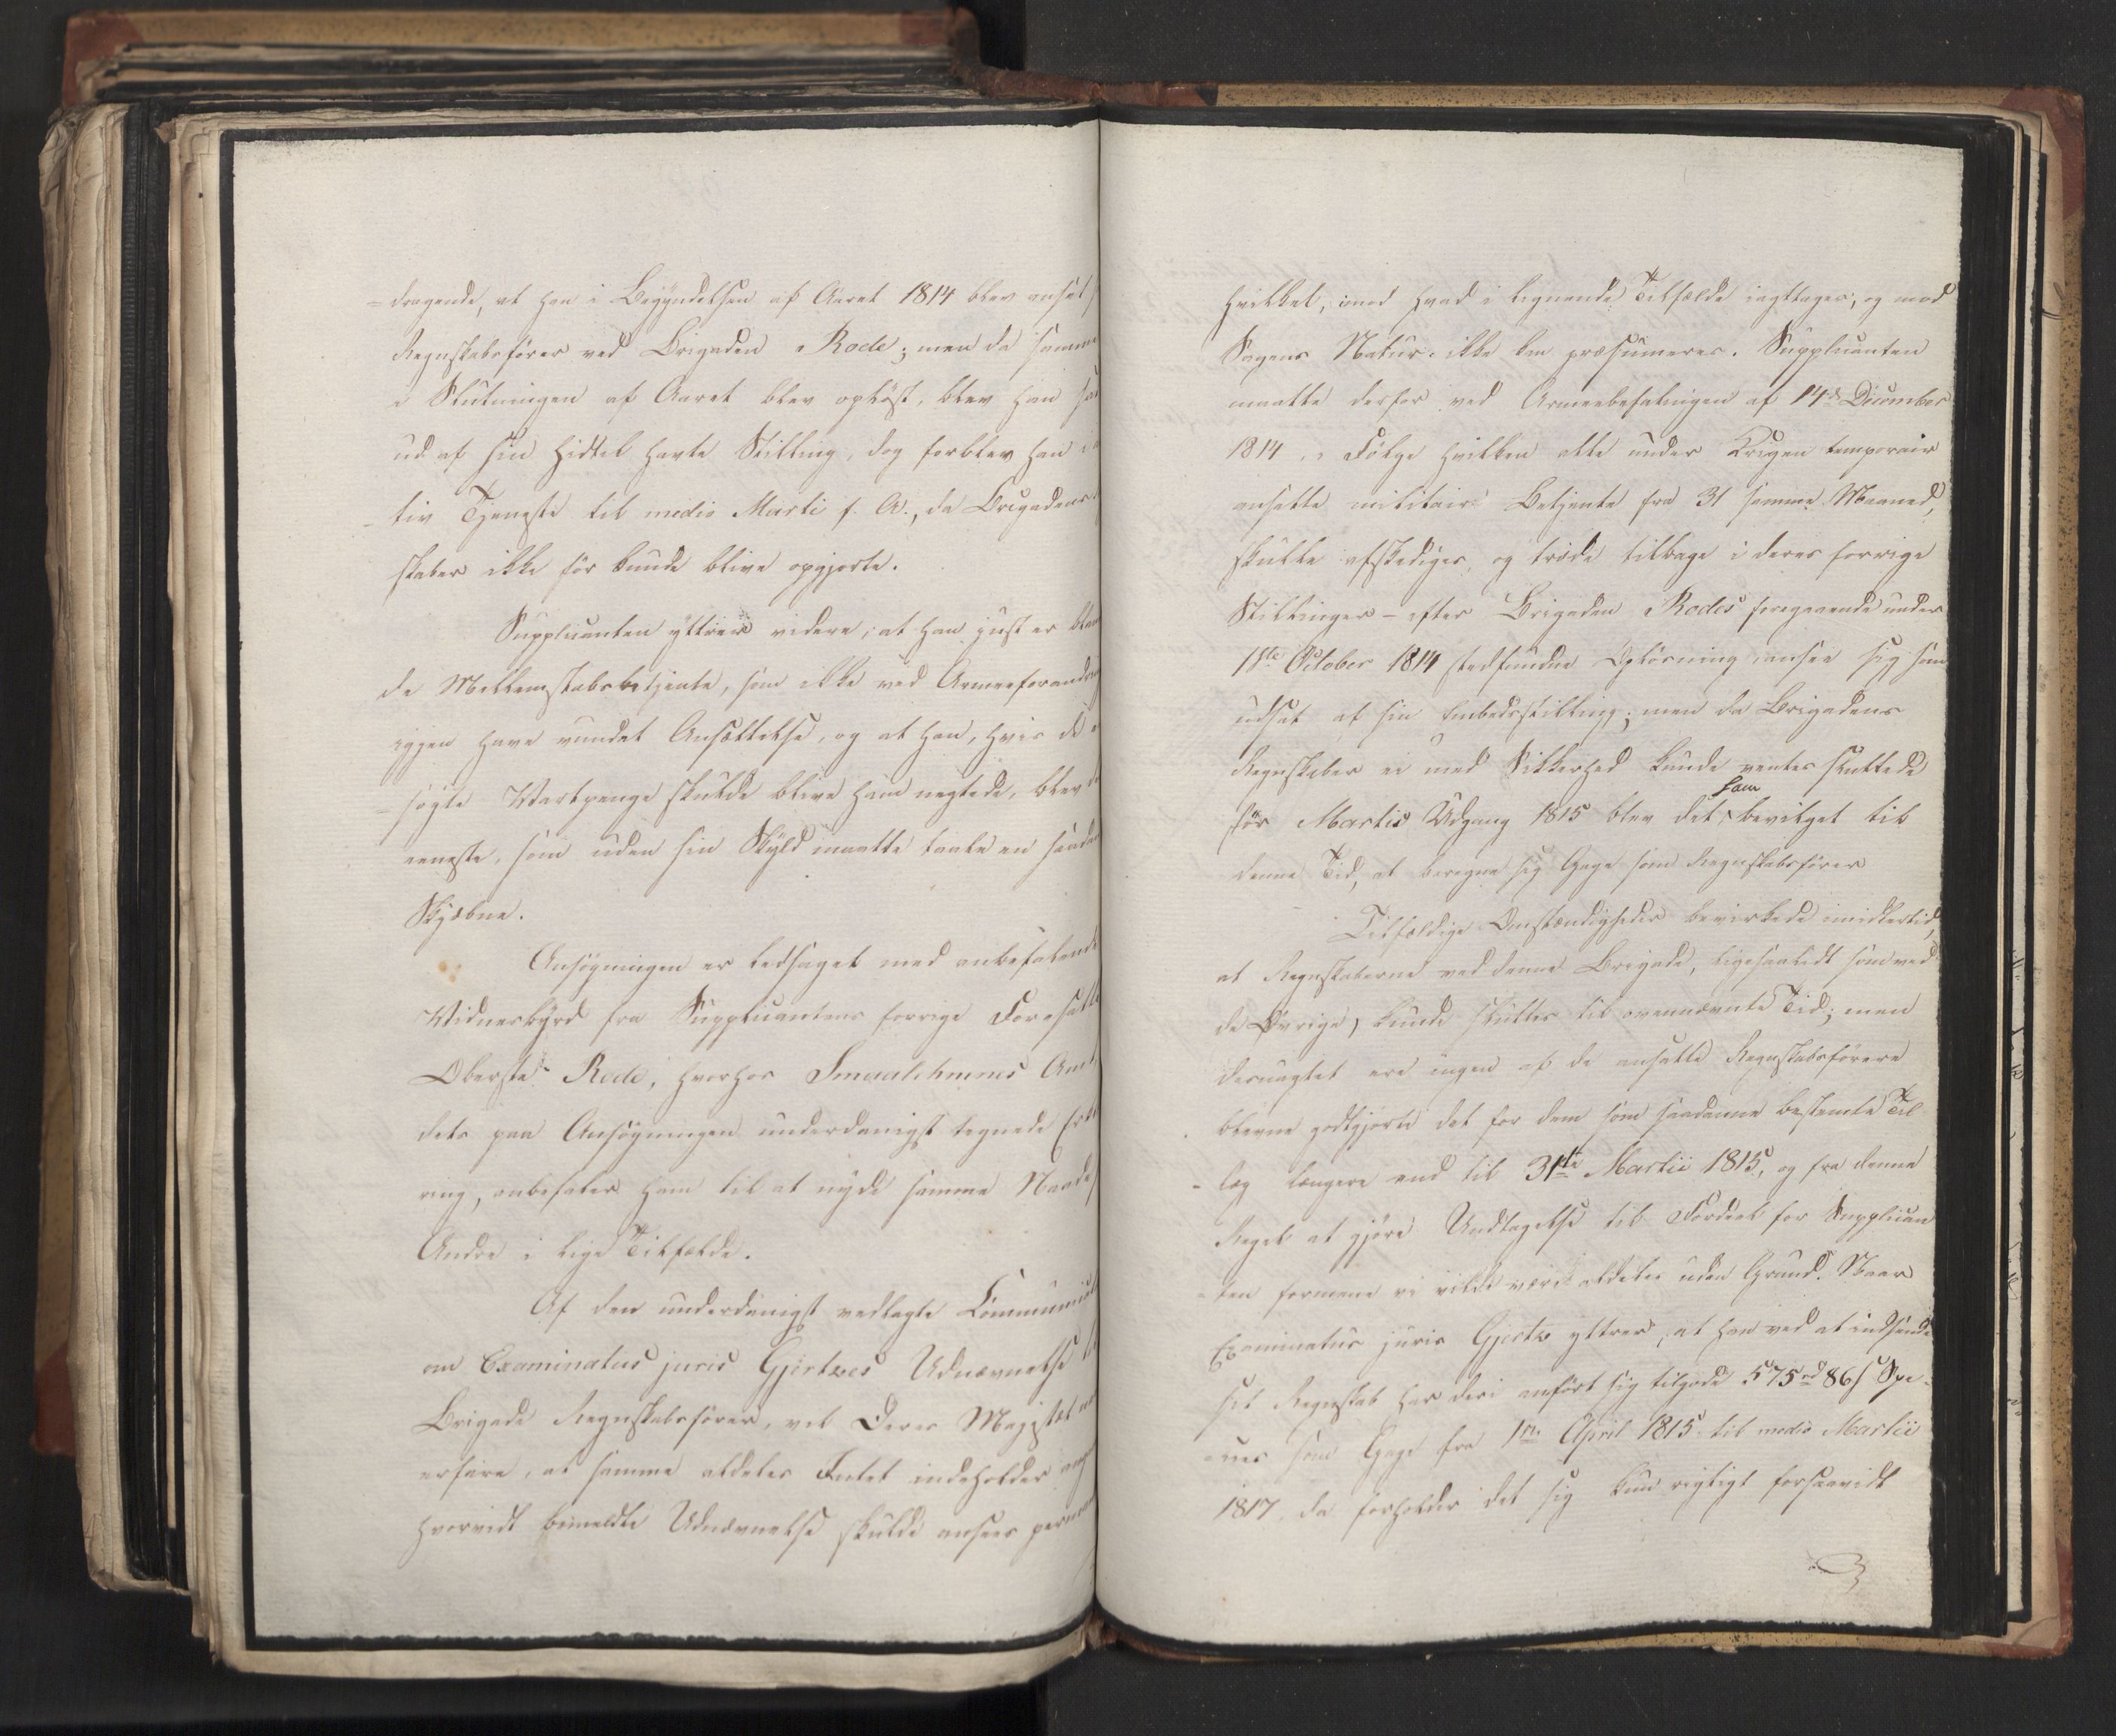 -dragende, at han i Begyndelsen af Aaret 1814 blev ansat
Regnskabsfører ved Brigaden Rode; men da samme
i Slutningen af Aaret blev opløst, blev han
ud af sin hidtil havte Stilling, dog forblev han i
-tiv Tjeneste til medio Marti f. A., da Brigadens
skaber ikke før kunde blive opgjorte.
Supplicanten yttrer videre, at han just er blan
de Mellemstabsbetjente, som ikke ved Armeeforandrin
gen have vundet Ansættelse, og at han, hvis de
-søgte Vartpenge skulde blive ham negtede, blev
eneste, som uden sin Skyld maatte taale en saadan
Skjæbne.
Ansøgningen er ledsaget med anbefalende
Vidnesbyrd fra Supplicantens forrige Foresatte
Oberste Rode, hvorhos Smaalehnenes Amt
dets paa Ansøgningen underdanigst tegnede Erklæ
ring, anbefaler ham til at nyde samme Naade
Andre i lige Tilfælde.
Af den underdanigst vedlagte Communicat
om Examinatus juris Gjertzes Udnævnelse til
Brigade Regnskabsfører, vil Deres Majestæt
erfare, at samme aldeles Intet indeholder
hvorvidt bemeldte Udnævnelse skulde ansees perman
hvilket, imod hvad i lignende Tilfælde iagttages, og mod
Sagens Natur ikke kan præsumeres. Supplicanten
maatte derfor ved Armeebefalingen af 14de December
1814, i Følge hvilken alle under Krigen temporair
ansatte militaire Betjente fra 31 samme Maaned,
skulle afskediges, og træde tilbage i deres forrige
Stillinger - efter Brigaden Rodes foregaaende under
18de October 1814 stedfundne Opløsning, ansee sig som
udsat af sin Embedsstilling; men da Brigadens
Regnskaber ei med Sikkerhed kunde ventes sluttede
før Martii Udgang 1815 blev det ham bevilget til
denne Tid, at beregne sig Gage som Regnskabsfører
Tilfældige Omstændigheder bevirkede imidlertid,
at Regnskaberne ved denne Brigade, ligesaalidt som ved
de Øvrige, kunde sluttes til ovennævnte Tid; men
desuagtet ere ingen af de ansatte Regnskabsførere
blevne godtgjorte det for dem som saadanne bestemte Til
-læg længere end til 31te Martii 1815, og fra denne
Regel at gjøre Undtagelse til Fordeel for Supplican
-ten formene vi vilde være aldeles uden Grund. Naar
Examinatus juris Gjertz yttrer, at han ved at indsende
sit Regnskab har deri anført sig tilgode 575rd 86s Spe-
-cies som Gage fra 1ste April 1815 til medio Martii
1817, da forholder det sig kun rigtigt forsaavidt